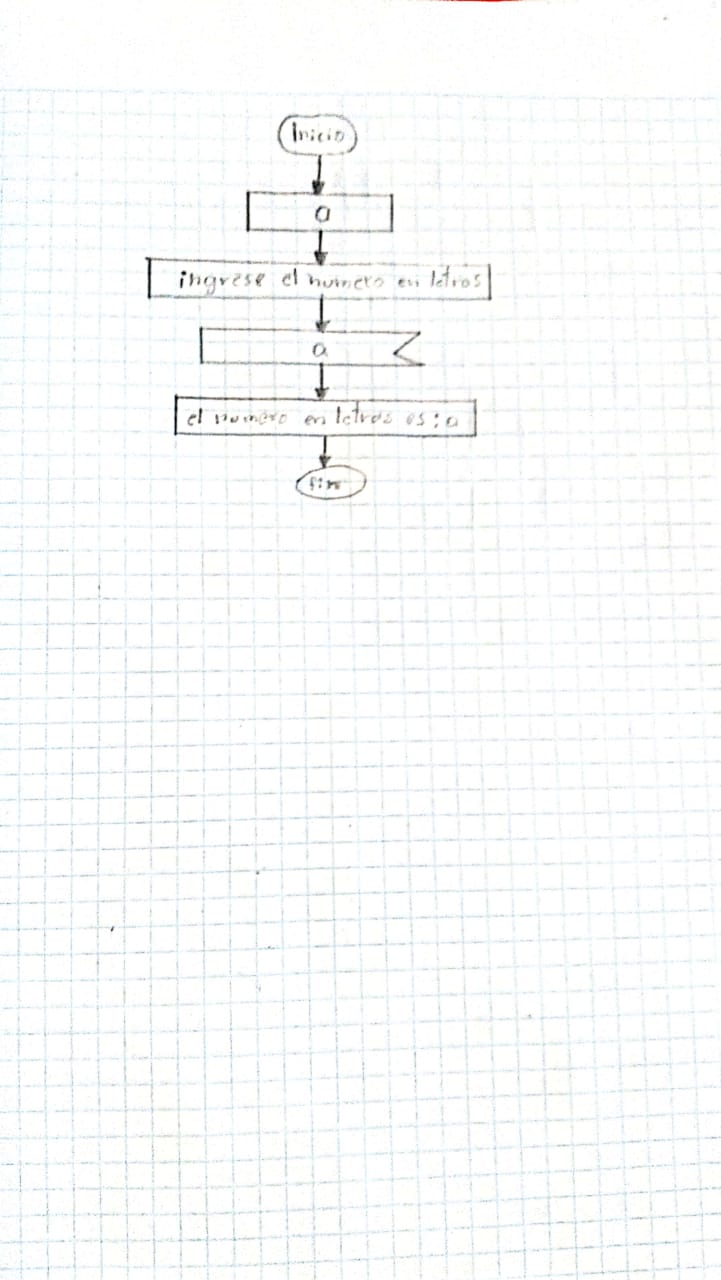 Inicio
a
ingrese el numero en letras
a
el numero en letras es: a
fin